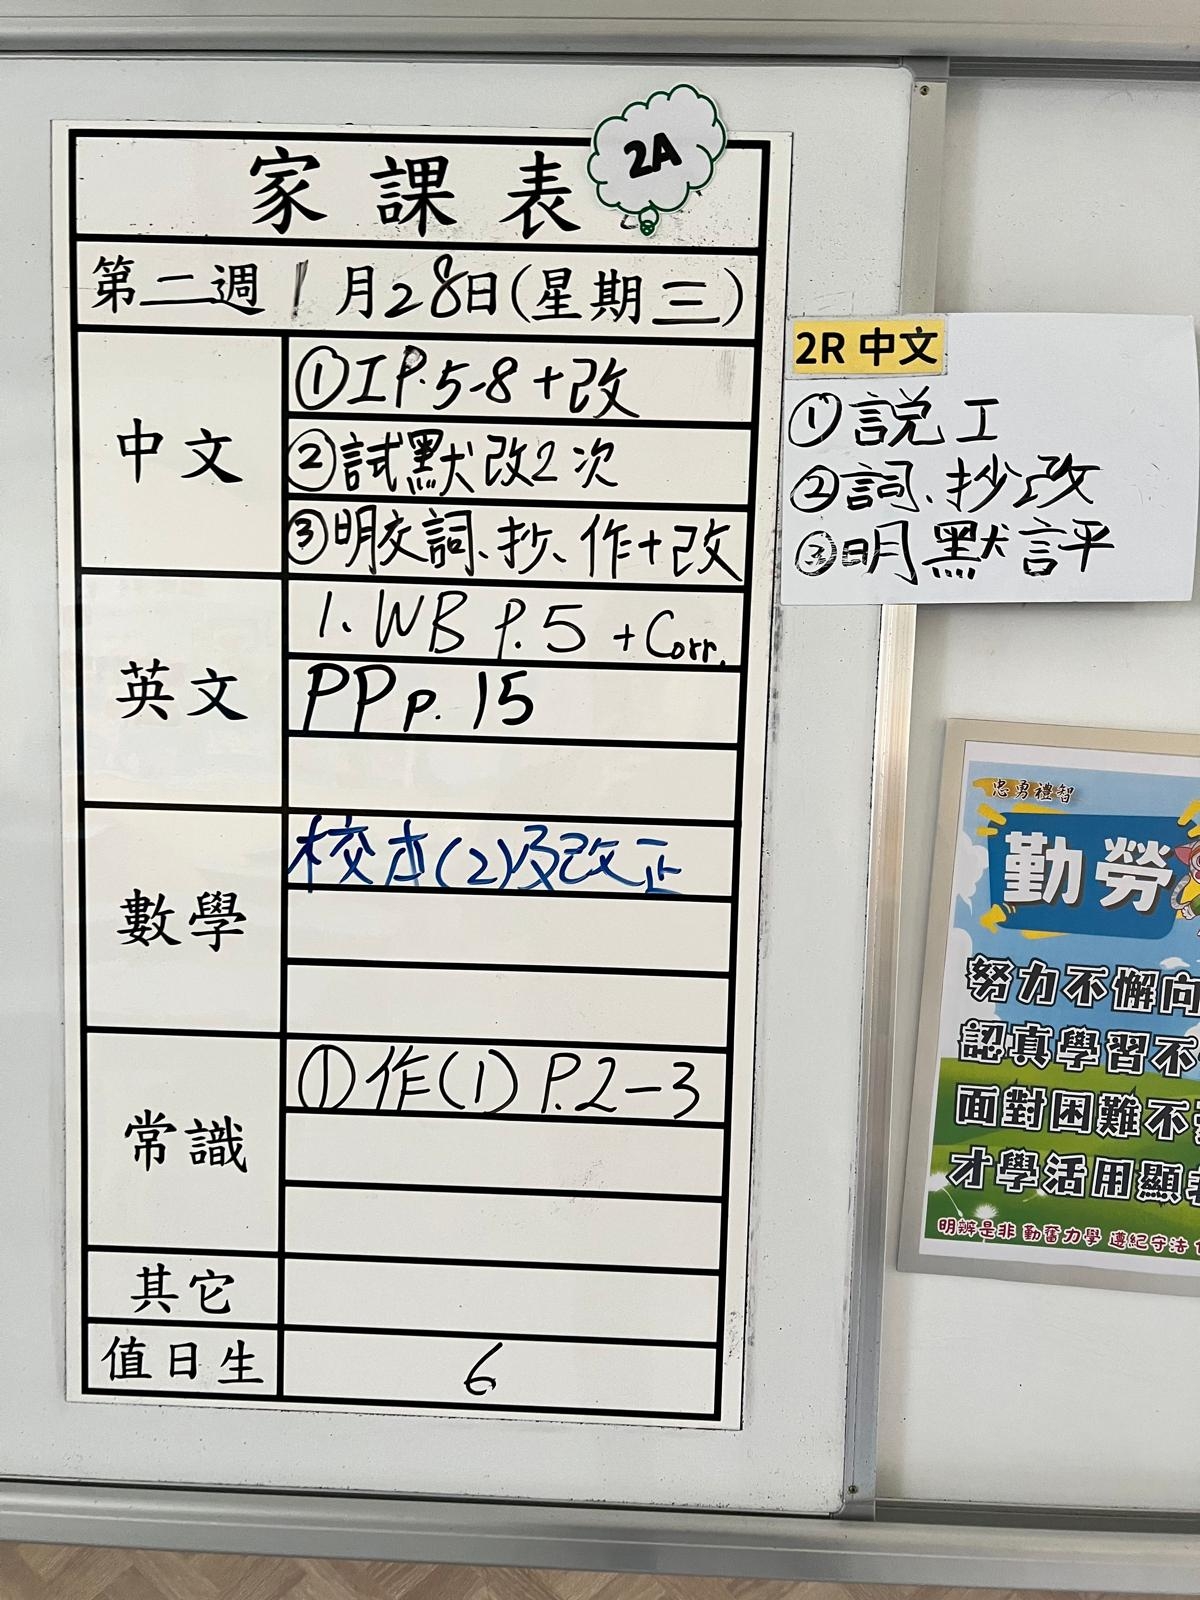 家課表
2A
第二週 1月28日(星期三)
中文
①工P.5-8+改
②試默改2次
③明交詞、抄、作+改
英文
1. WB P.5 +Corr.
PP p. 15
數學
校本(2)及改正
常識
①作(1) P.2-3
其它
值日生
6
2R 中文
①說工
②詞、抄改
③明默評
忠勇禮智
勤勞
努力不懈向
認真學習不
面對困難不
才學活用顯
明辨是非 勤奮力學 遵紀守法